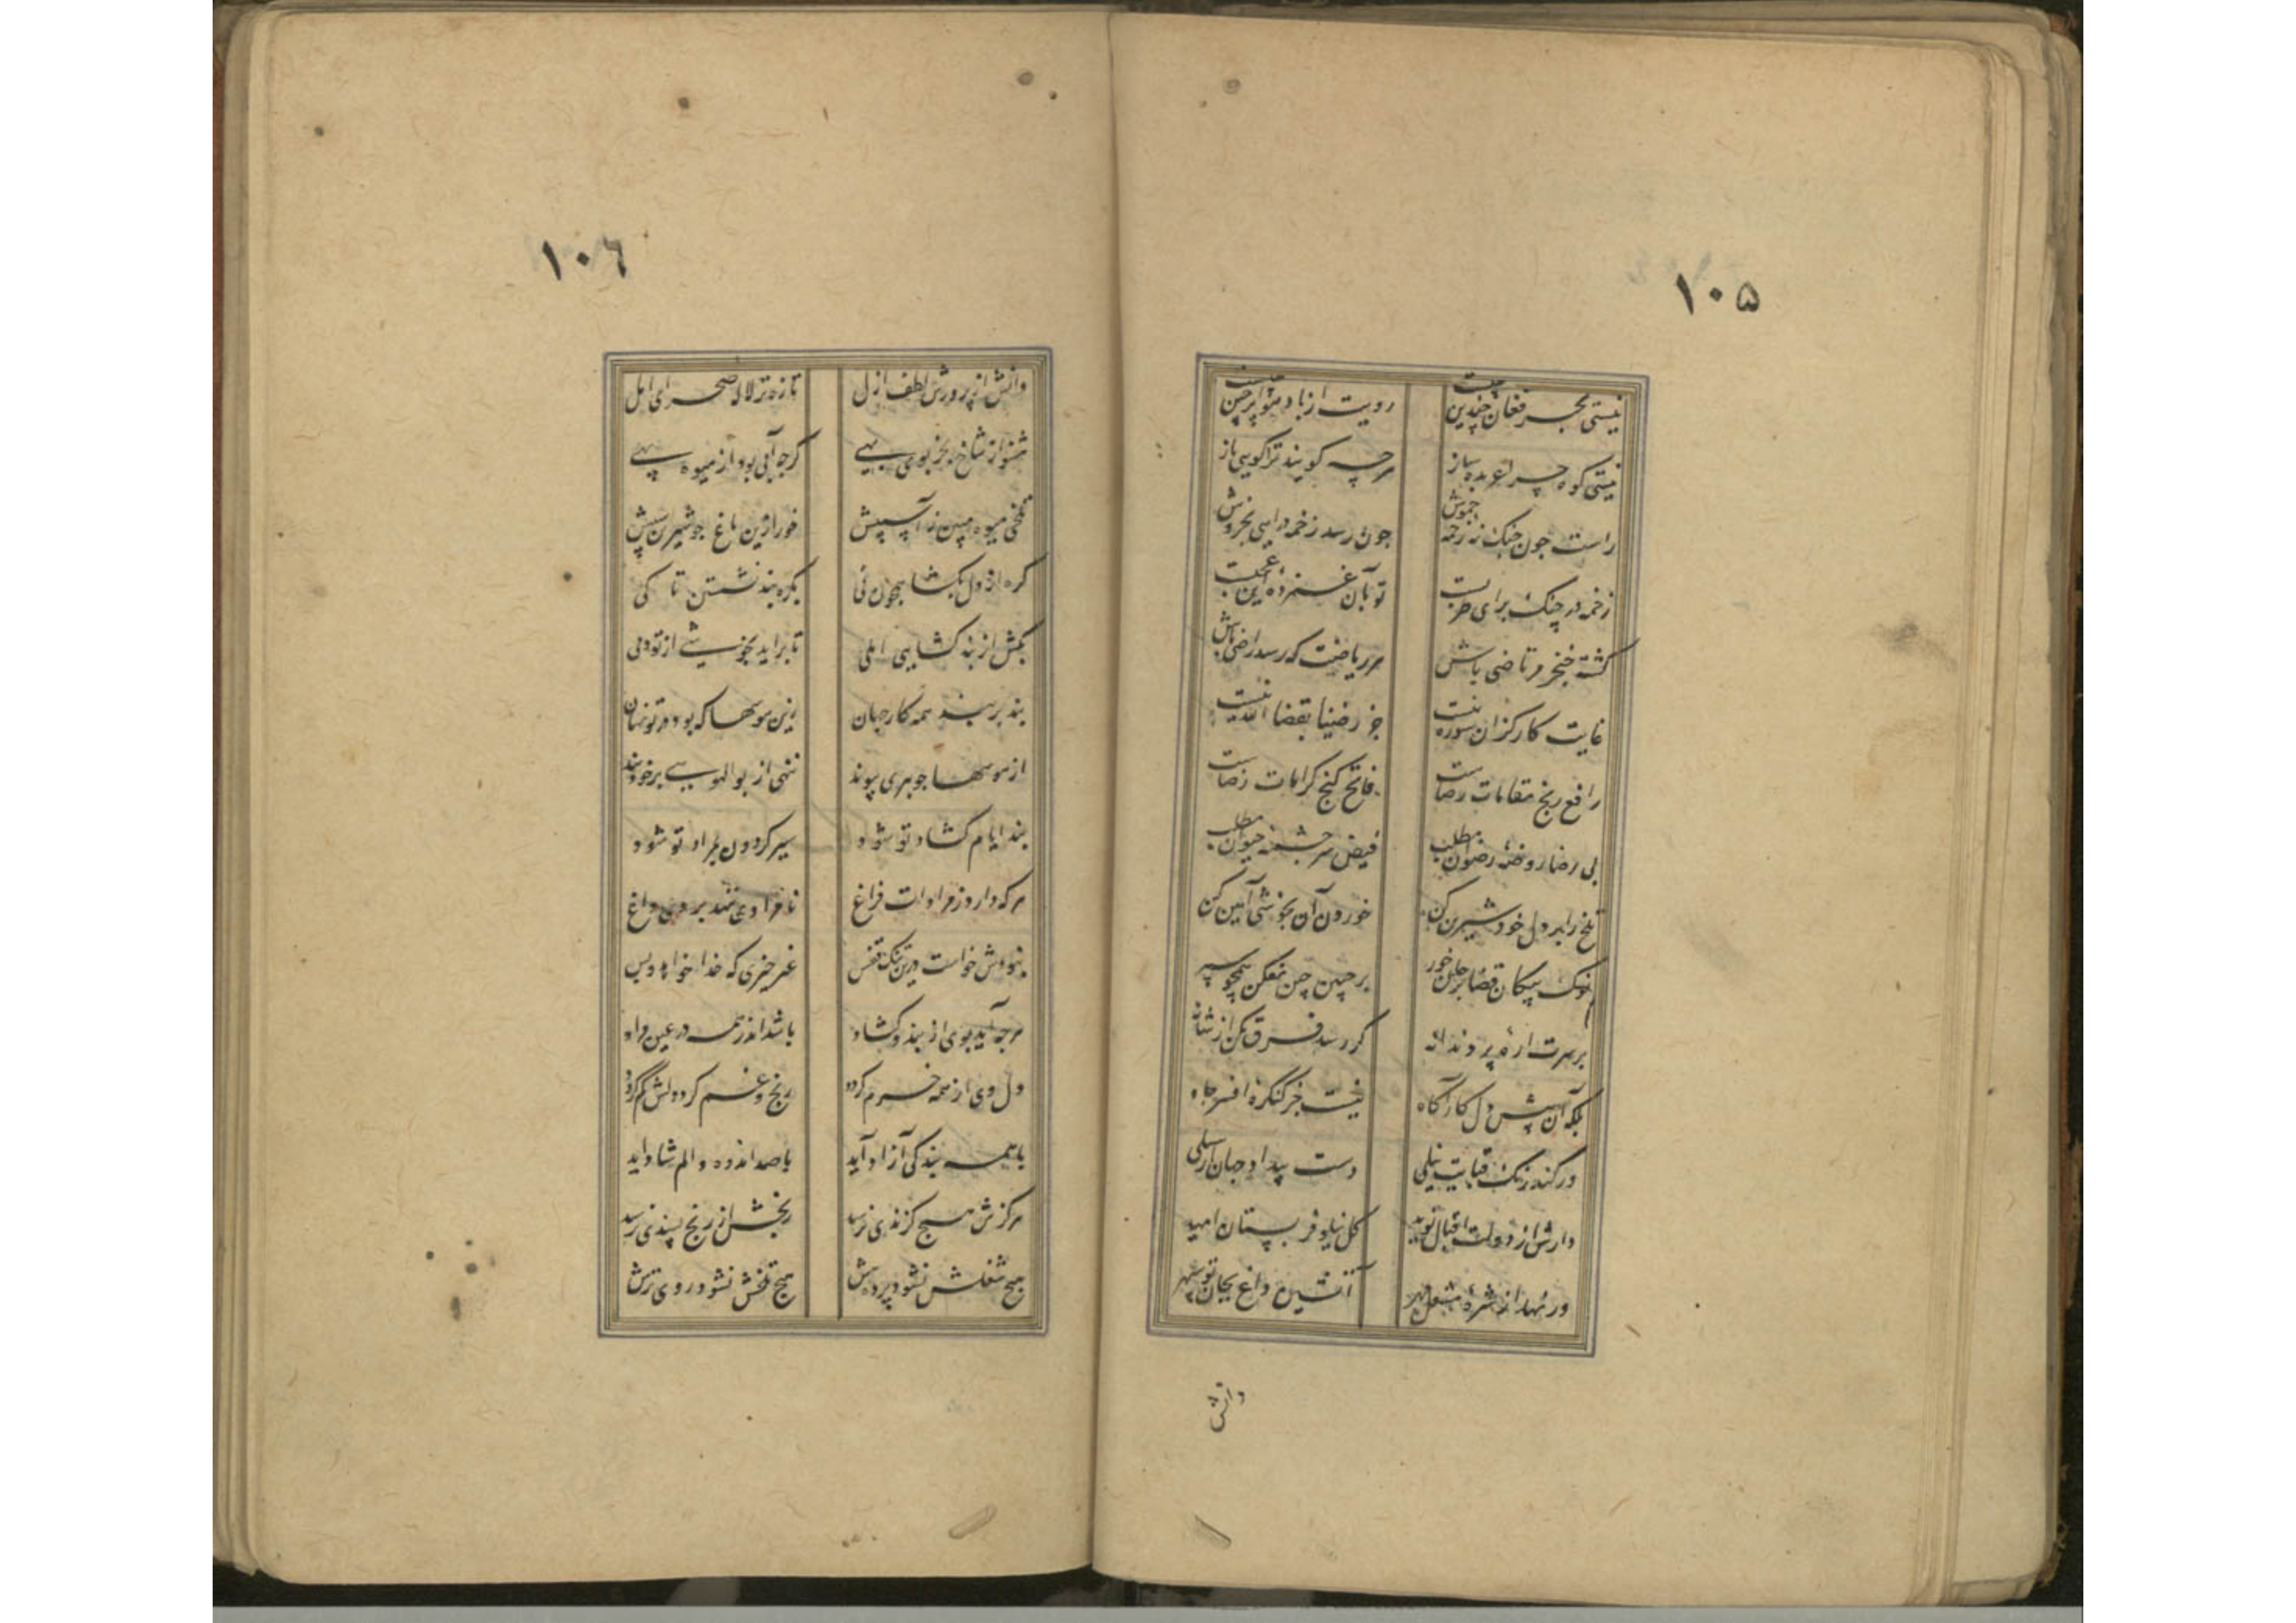 ۱۰۵
نیستی بحر فغان چندین چیست رویت از باد هوا پرچین چیست
نیستی کوه چرا عربده ساز هرچه گویند ترا گویی باز
راست چون چنک نه زخمه خموش چون رسد زخمه درایی بخروش
زخمه در چنک برای طربست تو بآن غمزده این عجبست
کشته خنجر مرتاضی باش هر ریاضت که رسد راضی باش
غایت کار کزان سوره نیست جز رضینا بقضا الله نیست
رافع رنج مقامات رضاست فاتح کنج کرامات رضاست
بی رضا روضهٔ رضوان مطلب فیض سرچشمهٔ حیوان مطلب
تلخ را بر دل خود شیرین کن خوردن آن بخوشی آیین کن
نوک پیکان قضا بر جان خور بر جبین چین مفکن همچو سپر
بر سرت ارهٔ پر دندانه کر رسد فرق مکن از شانه
بلکه آن پیش دل کار آکاه نیست جز کنکرهٔ افسر جاه
ور کند رنک قبایت نیلی دست بیداد جهان از سیلی
دارش از دولت اقبال نوید کل نیلوفر بستان امید
ور نهد از شرهٔ مشعل مهر آتشین داغ بجان تو سپهر
دانش
۱۰۶
دانش از پرورش لطف ازل تازه تر لاله صحرای امل
مشنو از شاخ بجز بوی بهی کرچه آبی بود از میوه تهی
تلخی میوه مبین ز آسیبش خور ازین باغ چو شیرین سیبش
کره از دل بکشا همچون نی بکره بند نشستن تا کی
بکش از بند کشایی املی تا براید بخوشی از تو دلی
بند بر بند همه کار جهان زین هوسها که بود در تو نهان
از هوسها چو بری پیوند ننهی از بوالهوسی بر خود بند
بند ایام کشاد تو شود سیر کردون بمراد تو شود
هرکه دارد ز مرادات فراغ نامرادی ننهد بر وی داغ
نبودش خواست درین تنک قفس غیر چیزی که خدا خواهد و بس
هرچه آید بوی از بند و کشاد باشد اندر همه در عین وداد
دل وی از همه خرم کردد رنج و غم کرد دلش کم کردد
با همه بندکی آزاد آید با صد اندوه و الم شاد اید
هرکزش هیچ کزندی نرسد رنجش از رنج پسندی نرسد
هیچ شغلش نشود پرده هش هیچ تلخش نشود روی ترش